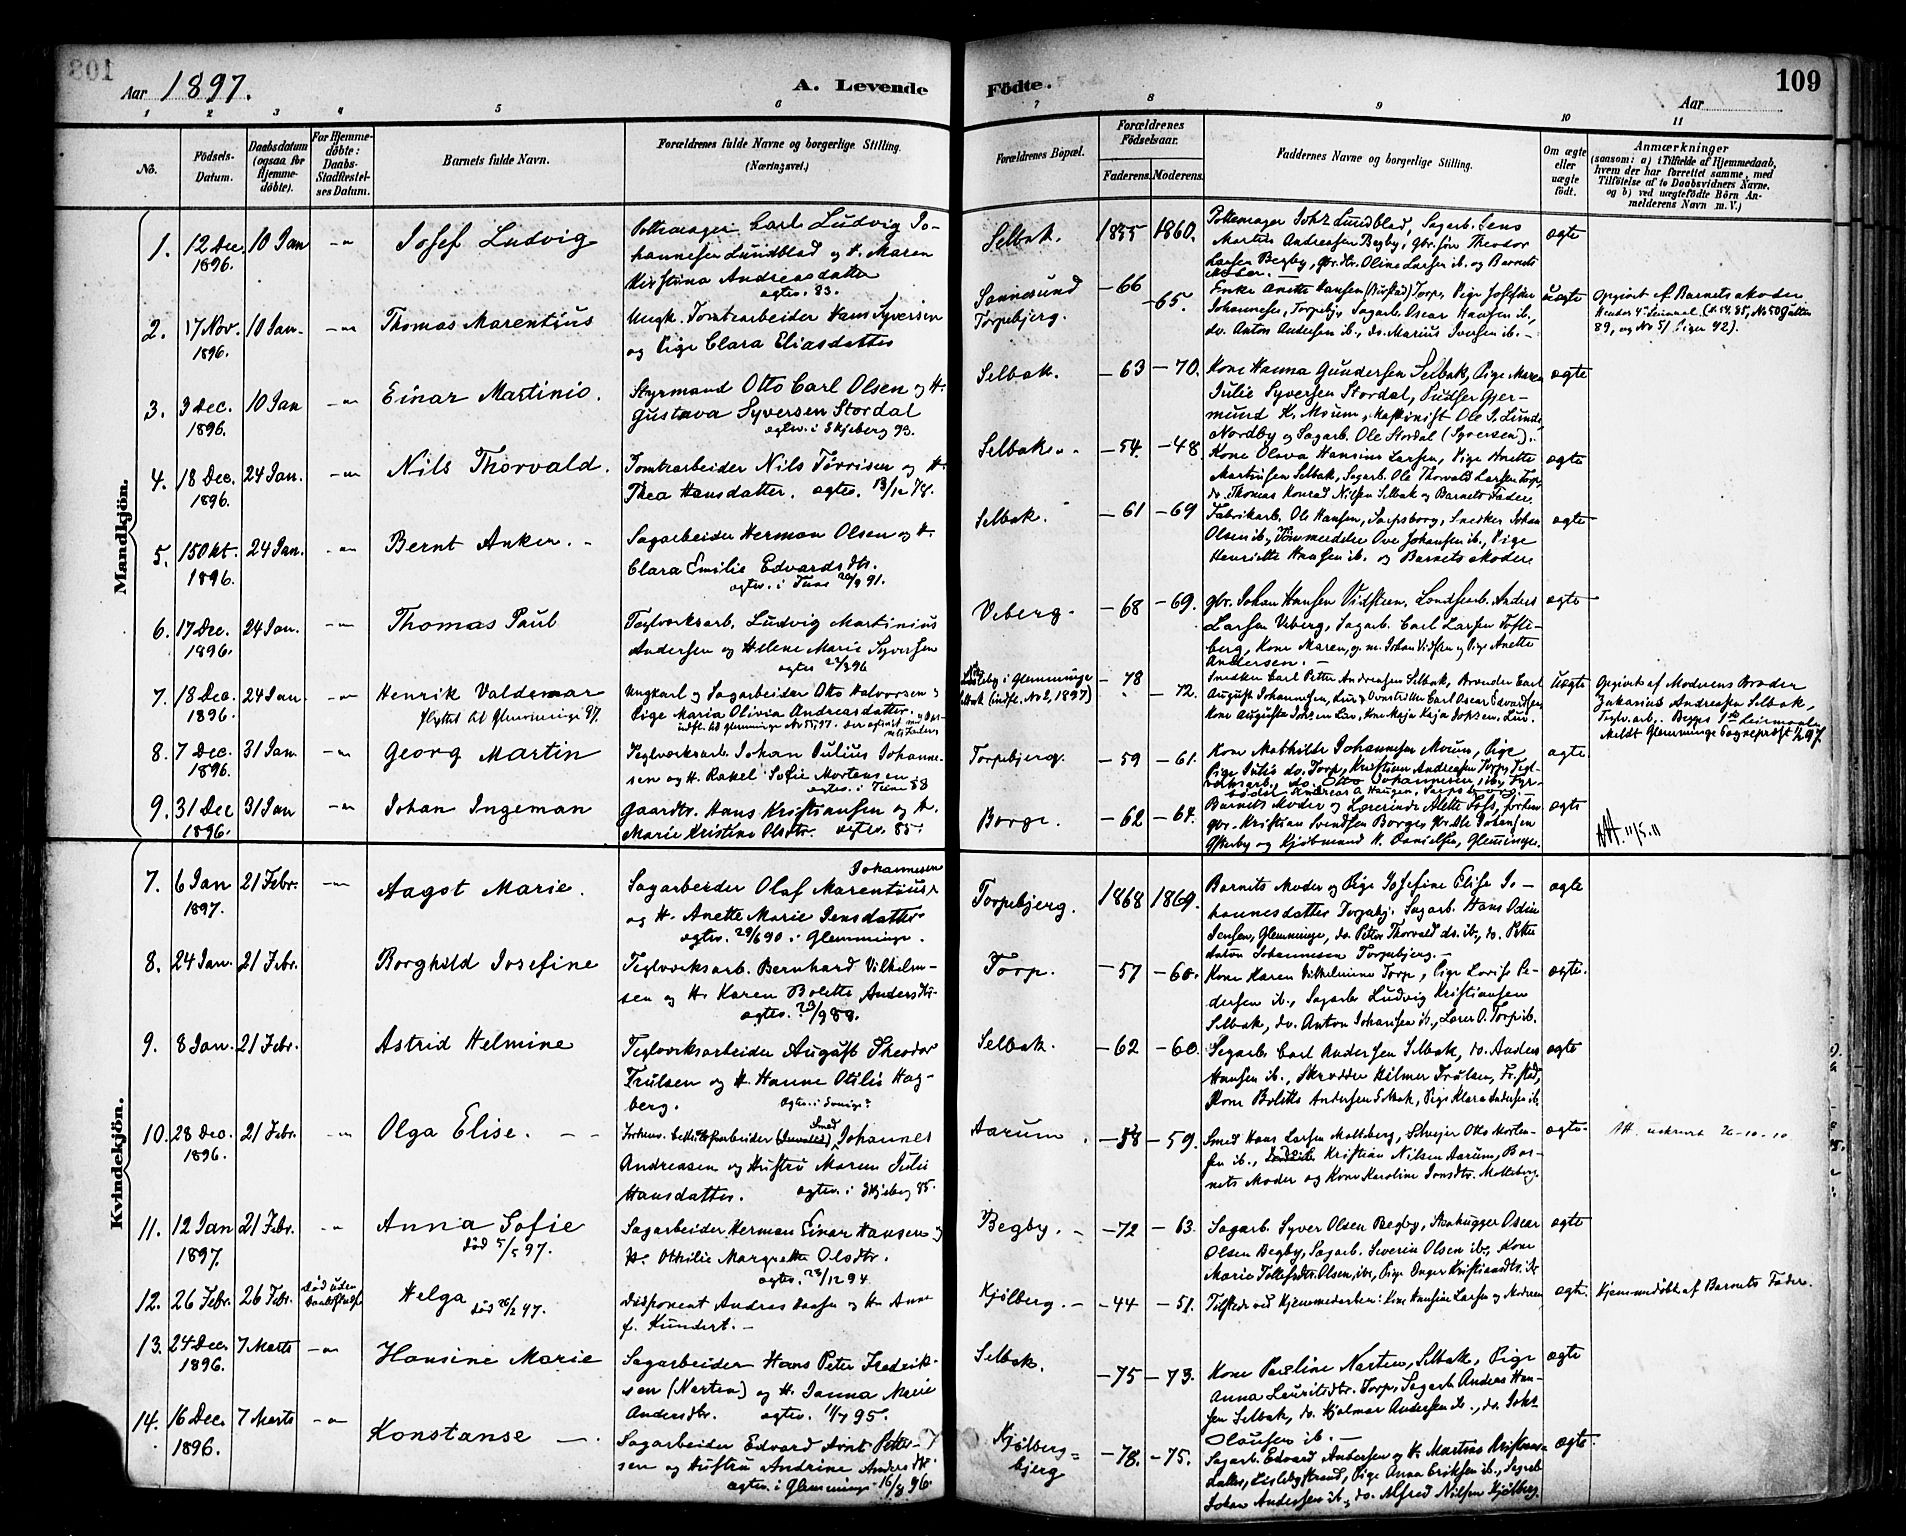 Aar 1897.
A. Levende
Födte.
109
Aar
1 2 3 4 5 6 7 8 9 10 11
No.
Födsels-Datum.
Daabsdatum (ogsaa for hjemme-döbte).
For Hjemme-döbte: Daabs-Stadfæstel-ses Datum.
Barnets fulde Navn.
Forældrenes fulde Navne og borgerlige Stilling.
(Næringsvei.)
Forældrenes Bopæl.
Forældrenes Födselsaar.
Faderens. Moderens.
Faddernes Navne og borgerlige Stilling.
Om ægte eller uægte födt.
Anmærkninger
(saasom: a) i Tilfælde af Hjemmedaab, hvem der har forrettet samme, med Tilföielse af to Daabsvidners Navne, og b) ved uægtefödte Börn An-melderens Navn m. V.)
Mandkjön.
1. 12 Dec 1896. 10 Jan Josef Ludvig
Pottemager Carl Ludvig Jo-
hannesen Lundblad og H. Maren
Kirstina Andreasdatter
ægtev. 83.
Selbak. 1855 1860.
Pottemager Johs Lundblad, Sagarb. Jens
Martin Andreasen Begby, gbr. søn Theodor
Larsen Begby, gbr. dtr. Oline Larsen ib. og Barnets
Moder. ægte
2. 17 Nov. 1896. 10 Jan. Thomas Marentius
Ungk. Tomtearbeider Hans Syversen
og Pige Clara Eliasdatter
Sannesund
Torpebjerg. -66 -65.
Enke Anette Hansen Torp, Pige Josefine
Johannesen, Torpebj. Sagarb. Oscar Hansen ib.,
do. Anton Andersen ib., do. Marius Iversen ib. uægte
Opgivet af Barnets Moder
3. 3 Dec. 1896. 10 Jan Einar Martinio.
Styrmand Otto Carl Olsen og H.
Gustava Syversen Stordal
ægtev. i Skjeberg 93.
Selbak. -63 -70.
Kone Hanna Gundersen Selbak, Pige Maren
Julie Syversen Stordal, Pudser Gjer-
mund K. Moum, Maskinist Ole J. Lunde,
Nordby og Sagarb. Ole Stordal (Syversen). ægte
4. 18 Dec. 1896. 24 Jan. Nils Thorvald.
Tomtearbeider Nils Törrisen og H.
Thea Hansdatter. ægtev. 13/12 78.
Selbak. -54. -48
Kone Olava Hansine Larsen, Pige Anette
Martinsen Selbak, Sagarb. Ole Thorvald Larsen Torp,
do. Thomas Konrad Nilsen Selbak og Barnets Fader. ægte
5. 15 Okt. 1896. 24 Jan. Bernt Anker.
Sagarbeider Herman Olsen og H.
Clara Emilie Edvardsdtr.
ægtev. i Tune 91.
Selbak. -61 -69
Fabrikarb. Ole Hansen, Sarpsborg, Snedker Johan
Olsen ib., Tømmerdeler Ove Johansen ib., Pige
Henriette Hansen ib. og Barnets Moder. ægte
6. 17 Dec. 1896. 24 Jan. Thomas Paul
Teglværksarb. Ludvig Martinius
Andersen og Helene Marie Syversen
Veberg. -68 -69.
gbr. Johan Hansen Vidsteen, Landsarb. Anders
Larsen Veberg, Sagarb. Carl Larsen Tofte-
berg, Kone Maren, g.m. Johan Vidsten og Pige Anette
Andersen. ægte
7. 18 Dec. 1896. 24 Jan Henrik Valdemar
Flyttet til Glemminge 97.
Ungkarl og Sagarbeider Otto Halvorsen og
Pige Maria Olivia Andreasdatter.
i Glemminge
Selbak (indfl. No 2, 1897) -78 -72.
Snedker Carl Petter Andreasen Selbak, Brænder Carl
August Johannesen, Carl Oscar Edvardsen uægte
Opgivet af Moderens Broder
Zakarius Andreasen Selbak,
Teglv.arb. Begges 1ste Leiermaal.
Meldt Glemminge Sognepræst
8. 7 Dec. 1896. 31 Jan Georg Martin
Teglværksarb. Johan Julius Johanne-
sen og H. Rakel Sofie Mortensen.
ægtev. i Tune 88
Torpebjerg. -59 -61.
Kone Mathilde Johannesen Moum, Pige
Pige Julie do. Torp, Kristian Andreasen Torp, ægte
9. 31 Dec 1896. 31 Jan Johan Ingeman
Gaardbr. Hans Kristiansen og H.
Marie Kristine Olsdtr. ægtev. 85.
Borge. -62 -64.
Barnets Moder og Lærerinde Alette Foss,
gbr. Kristian Svendsen Borge, gbr. Ole Johansen
og Kjøbmand H. Danielsen, Glemminge. ægte
Kvindekjön.
7. 6 Jan 1897. 21 Febr. Aagot Marie.
Johannesen
Sagarbeider Olaf Marentius
og H. Anette Marie Jensdatter
ægtev. 29/6 90 i Glemminge.
Torpebjerg. 1868 1869.
Barnets Moder og Pige Josefine Elise Jo-
hannesdatter Torpebj. Sagarb. Hans Odin
Jensen, Glemminge, do. Petter Thorvald do. ib., do. Petter
Anton Johannesen Torpebjerg. ægte
8. 24 Jan. 21 Febr. Borghild Josefine
Teglværksarb. Bernhard Vilhelm-
sen og H. Karen Bolette Andersdtr.
Torp. -57 -60.
Kone Karen Vilhelmine Torp, Pige Lovise Pe-
dersen ib., Sagarb. Ludvig Kristiansen
Selbak, do. Anton Johansen ib., Lærer O. Torp ib. ægte.
9. 8 Jan. 21 Febr. Astrid Helmine
Teglværksarbeider August Theodor
Trulsen og H. Hanne Otilie Hag-
berg. Ægtev. i Sverige?
Selbak. -62 -60.
Sagarb. Carl Andersen Selbak, do. Anders
Hansen ib., Skrædder Hilmer Trulsen, Fr.stad,
Kone Bolette Andersen Selbak, Pige Klara Andersen ib. ægte
10. 28 Dec. 1896. 21 Febr. Olga Elise.
Smed
(Invalid) Johannes
Andreasen og Hustru Maren Julie
Hansdatter. ægtev. i Skjeberg 85.
Aarum. -58 -59.
Smed Hans Larsen Molteberg, Sveiser Otto Morten-
sen ib., Kristian Nilsen Aarum, Bar-
nets Moder og Kone Karoline Jonsdtr. Molteberg. ægte
Att. udskrevet 26-10-10
11. 12 Jan 1897. 21 Febr. Anna Sofie
død 5/5 97.
Sagarbeider Herman Einar Hansen og
H. Othilie Margrethe Olsdtr.
Begby. -72 -63.
Sagarb. Syver Olsen Begby, Stenhugger Oscar
Olsen Begby, Sagarb. Severin Olsen ib., Kone
Marie Tollefsdtr. Olsen, ib., Pige Inger Kristiansdtr. ib. ægte
12. 26 Febr. 26 Febr. Død uden Helga
død 26/2 97.
Disponent Andreas og H. Anna
f. Kundert.
Kjølberg. -44 -51.
Tilstede ved Hjemmedaaben: Kone Hansine Larsen og Moderen ægte
Hjemmedøbt af Barnets Fader.
13. 24 Dec. 1896. 7 Marts Hansine Marie
Sagarbeider Hans Peter Fredrik-
sen (Narten) og H. Janna Marie
Andersdtr. ægtev. 95.
Selbak. -75 -73.
Kone Pauline Narten, Selbak, Pige
Anna Lauritsdtr. Torp, Sagarb. Andreas Han-
sen Selbak, do. Hjalmar Andersen ib., do. Johs
Olausen ib. ægte
14. 16 Dec. 1896. 7 Marts Konstanse
Sagarbeider Edvard Arnt Petter-
sen og Hustru Andrine Andersdtr.
ægtev. i Glemminge 96.
Kjølberg-
bjerg -78. -75.
Sagarb. Edvard Andersen og H. Martine Kristians-
datter, Lislebystrand, Pige Anna Eriksen ib., Sagarb.
Johan Andersen ib., do. Alfred Nilsen Kjølberg. ægte.